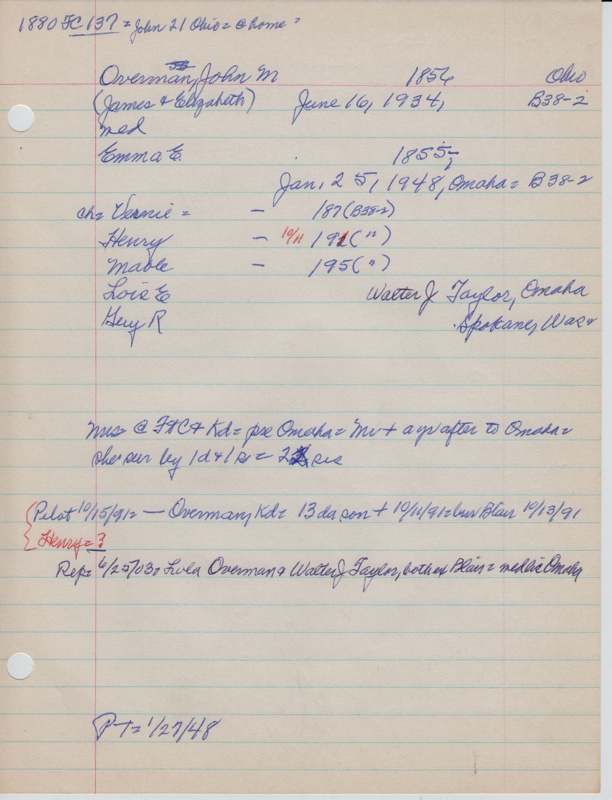 1880 FC 137 = John 21 Ohio = @ home =
Overman, John M 1856 Ohio
(James & Elizabeth) June 16, 1934, B38-2
med
Emma E. 1855,
Jan. 25, 1948, Omaha = B38-2
ch = Vernie = - 187(B38-2)
Henry - 10/11 191(")
Mable - 195(")
Lois E Walter J Taylor, Omaha
R Spokane,
@ Kd = Omaha = + a yr after to Omaha =
she sur by 1d & 1 =
Pilot 10/15/91 = - Overman, Kd = 13 da son + 10/11/91 = bur Blair 10/13/91
Henry = ?
Rep = 6/25/03 = Lola Overman & Walter J Taylor, both of Blair = med live Omaha
P-T = 1/27/48